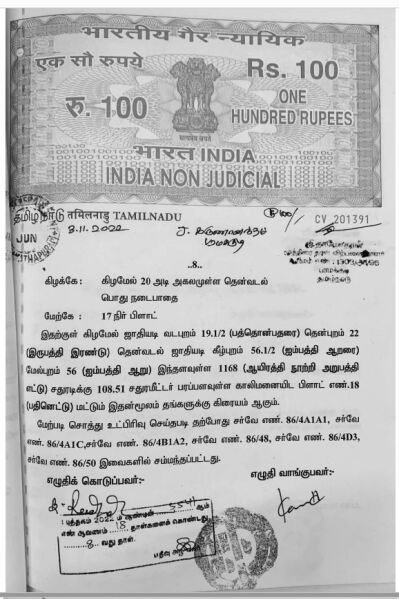 भारतीय गैर न्यायिक
एक सौ रुपये
Rs. 100
रु. 100
ONE
HUNDRED RUPEES
सत्यमेव जयते
भारत INDIA
INDIA NON JUDICIAL
தமிழ்நாடு तमिलनाडु TAMILNADU
CV 201391
3.11.2022
JUN
..8..
கிழக்கே : கிழமேல் 20 அடி அகலமுள்ள தென்வடல்
பொது நடைபாதை
மேற்கே : 17 நிர் பிளாட்
இதற்குள் கிழமேல் ஜாதியடி வடபுறம் 19.1/2 (பத்தொன்பதரை) தென்புறம் 22
(இருபத்தி இரண்டு) தென்வடல் ஜாதியடி கீழ்புறம் 56.1/2 (ஐம்பத்தி ஆறரை)
மேல்புறம் 56 (ஐம்பத்தி ஆறு) இந்தளவுள்ள 1168 (ஆயிரத்தி நூற்றி அறுபத்தி
எட்டு) சதுரடிக்கு 108.51 சதுரமீட்டர் பரப்பளவுள்ள காலிமனையிட பிளாட் எண்.18
(பதினெட்டு) மட்டும் இதன்மூலம் தங்களுக்கு கிரையம் ஆகும்.
மேற்படி சொத்து உட்பிரிவு செய்தபடி தற்போது சர்வே எண். 86/4A1A1, சர்வே
எண். 86/4A1C,சர்வே எண். 86/4B1A2, சர்வே எண். 86/48, சர்வே எண். 86/4D3,
சர்வே எண். 86/50 இவைகளில் சம்மந்தப்பட்டது.
எழுதிக் கொடுப்பவர்:-
எழுதி வாங்குபவர்:-
1 புத்தகம் 2022 ம் ஆண்டின் 5541 ஆம்
எண் ஆவணம் 18 தாள்களைக் கொண்டது
8 வது தாள்.